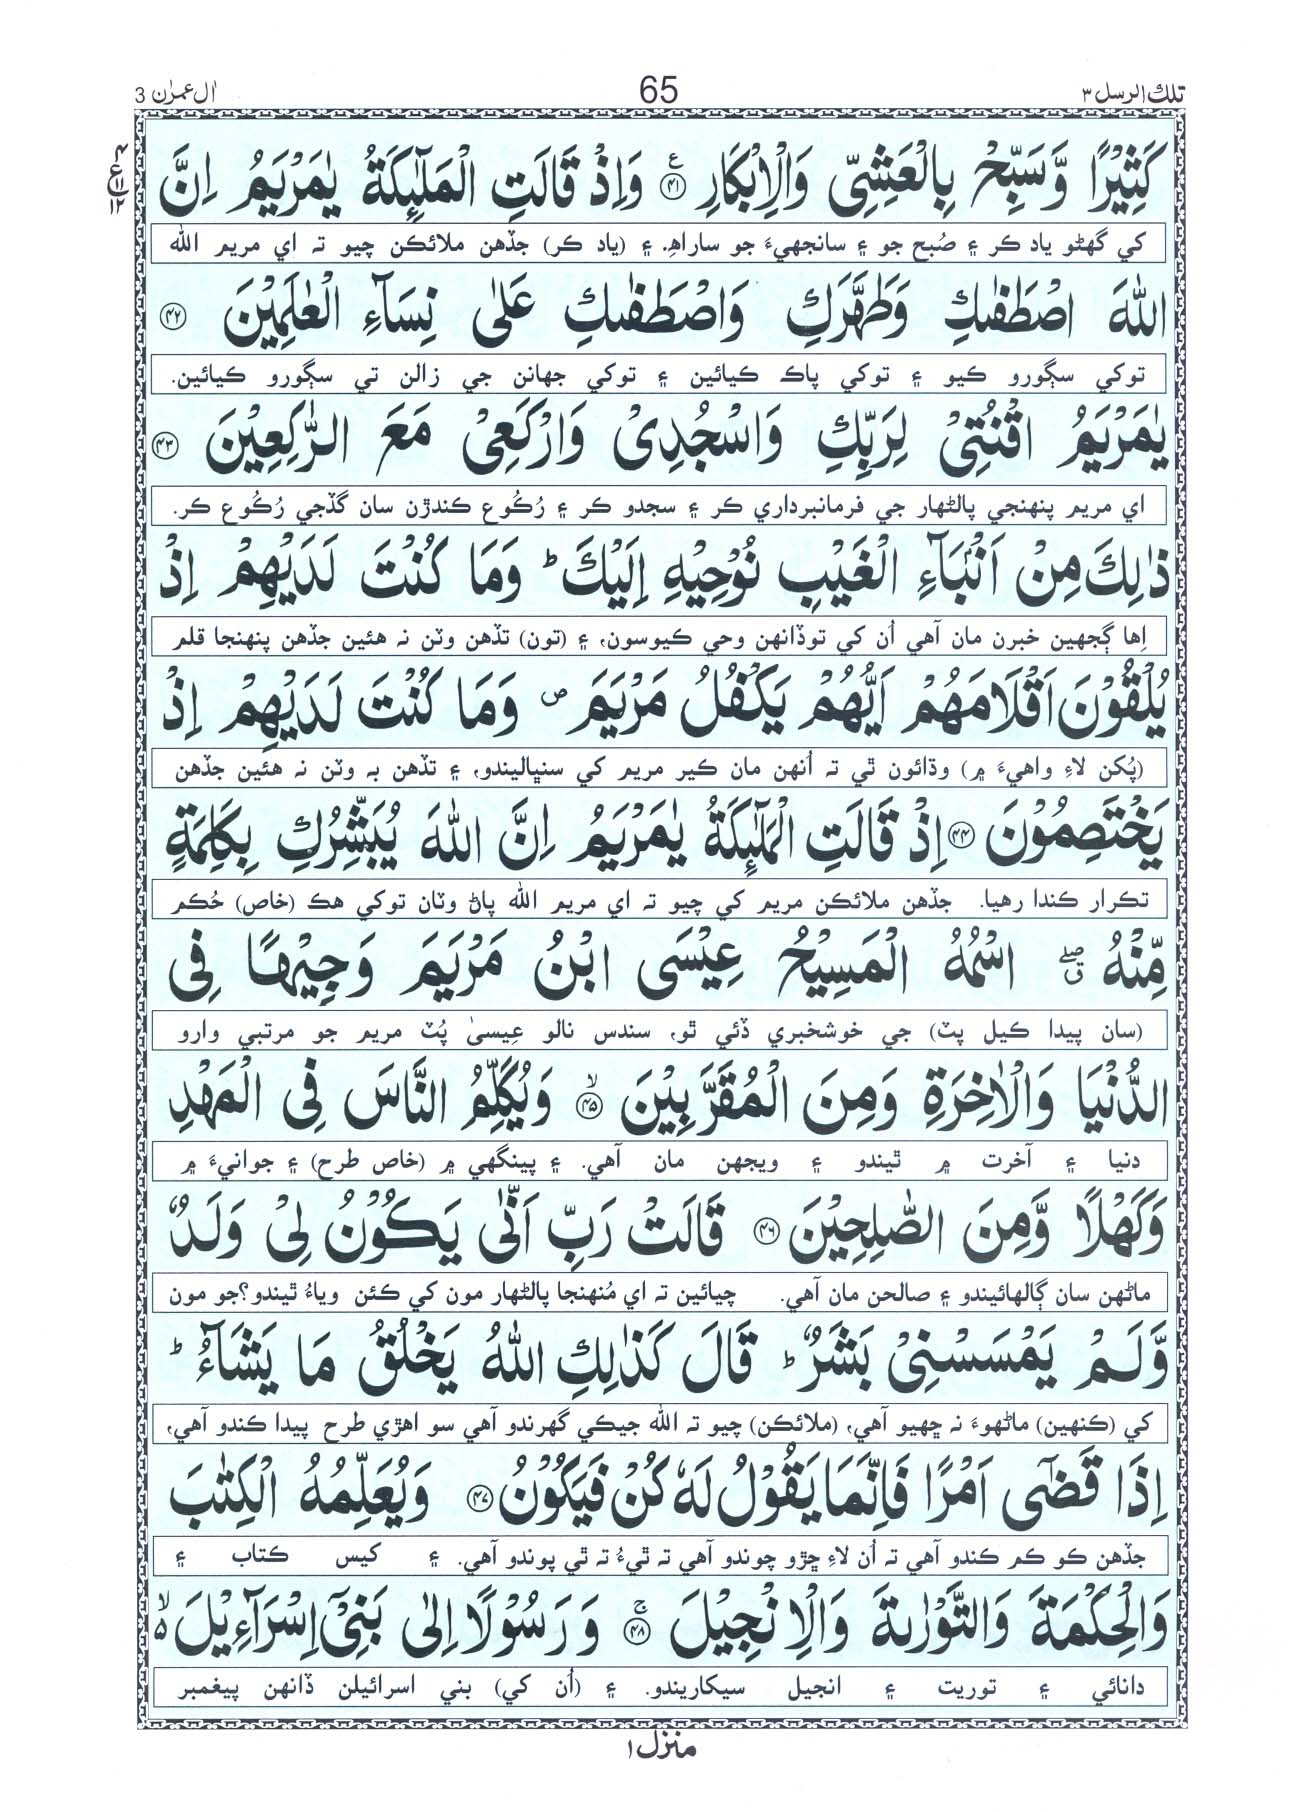 تلك الرسل ٣
65
اٰل عمرٰن 3
كَثِيْرًا وَّسَبِّحْ بِالْعَشِيِّ وَالْاِبْكَارِ ﴿۴۱﴾ ع وَاِذْ قَالَتِ الْمَلٰٓئِكَةُ يٰمَرْيَمُ اِنَّ
کي گھڻو ياد ڪر ۽ صُبح جو ۽ سانجهيءَ جو ساراھِ. ۽ (ياد ڪر) جڏهن ملائڪن چيو تہ اي مريم الله
اللّٰهَ اصْطَفٰىكِ وَطَهَّرَكِ وَاصْطَفٰىكِ عَلٰى نِسَآءِ الْعٰلَمِيْنَ ﴿۴۲﴾
توکي سڳورو ڪيو ۽ توکي پاڪ ڪيائين ۽ توکي جهانن جي زالن تي سڳورو ڪيائين.
يٰمَرْيَمُ اقْنُتِيْ لِرَبِّكِ وَاسْجُدِيْ وَارْكَعِيْ مَعَ الرّٰكِعِيْنَ ﴿۴۳﴾
اي مريم پنهنجي پالڻهار جي فرمانبرداري ڪر ۽ سجدو ڪر ۽ رُڪُوع ڪندڙن سان گڏجي رُڪُوع ڪر.
ذٰلِكَ مِنْ اَنْۢبَآءِ الْغَيْبِ نُوْحِيْهِ اِلَيْكَ ؕ وَمَا كُنْتَ لَدَيْهِمْ اِذْ
اِها ڳجهين خبرن مان آهي اُن کي توڏانهن وحي ڪيوسون، ۽ (تون) تڏهن وٽن نہ هئين جڏهن پنهنجا قلم
يُلْقُوْنَ اَقْلَامَهُمْ اَيُّهُمْ يَكْفُلُ مَرْيَمَ ۪ وَمَا كُنْتَ لَدَيْهِمْ اِذْ
(پُکن لاءِ واهيءَ ۾) وڌائون ٿي تہ اُنهن مان ڪير مريم کي سنڀاليندو، ۽ تڏهن بہ وٽن نہ هئين جڏهن
يَخْتَصِمُوْنَ ﴿۴۴﴾ اِذْ قَالَتِ الْمَلٰٓئِكَةُ يٰمَرْيَمُ اِنَّ اللّٰهَ يُبَشِّرُكِ بِكَلِمَةٍ
تڪرار ڪندا رهيا. جڏهن ملائڪن مريم کي چيو تہ اي مريم الله پاڻ وٽان توکي هڪ (خاص) حُڪم
مِّنْهُ ۖۗ اسْمُهُ الْمَسِيْحُ عِيْسَى ابْنُ مَرْيَمَ وَجِيْهًا فِى
(سان پيدا ڪيل پٽ) جي خوشخبري ڏئي ٿو، سندس نالو عِيسىٰ پُٽ مريم جو مرتبي وارو
الدُّنْيَا وَالْاٰخِرَةِ وَمِنَ الْمُقَرَّبِيْنَ ﴿۴۵﴾ ۙ وَيُكَلِّمُ النَّاسَ فِى الْمَهْدِ
دنيا ۽ آخرت ۾ ٿيندو ۽ ويجهن مان آهي. ۽ پينگهي ۾ (خاص طرح) ۽ جوانيءَ ۾
وَكَهْلًا وَّمِنَ الصّٰلِحِيْنَ ﴿۴۶﴾ قَالَتْ رَبِّ اَنّٰى يَكُوْنُ لِيْ وَلَدٌ
ماڻهن سان ڳالهائيندو ۽ صالحن مان آهي. چيائين تہ اي مُنهنجا پالڻهار مون کي ڪئن وياءُ ٿيندو؟جو مون
وَّلَمْ يَمْسَسْنِيْ بَشَرٌ ؕ قَالَ كَذٰلِكِ اللّٰهُ يَخْلُقُ مَا يَشَآءُ ؕ
کي (ڪنهين) ماڻهوءَ نہ ڇهيو آهي، (ملائڪن) چيو تہ الله جيڪي گهرندو آهي سو اهڙي طرح پيدا ڪندو آهي،
اِذَا قَضٰٓى اَمْرًا فَاِنَّمَا يَقُوْلُ لَهٗ كُنْ فَيَكُوْنُ ﴿۴۷﴾ وَيُعَلِّمُهُ الْكِتٰبَ
جڏهن ڪو ڪم ڪندو آهي تہ اُن لاءِ ڇڙو چوندو آهي تہ ٿيءُ تہ ٿي پوندو آهي. ۽ کيس ڪتاب ۽
وَالْحِكْمَةَ وَالتَّوْرٰىةَ وَالْاِنْجِيْلَ ﴿۴۸﴾ ۚ وَرَسُوْلًا اِلٰى بَنِيْٓ اِسْرَآءِيْلَ ۙ۵
دانائي ۽ توريت ۽ انجيل سيکاريندو. ۽ (اُن کي) بني اسرائيلن ڏانهن پيغمبر
منزل ١